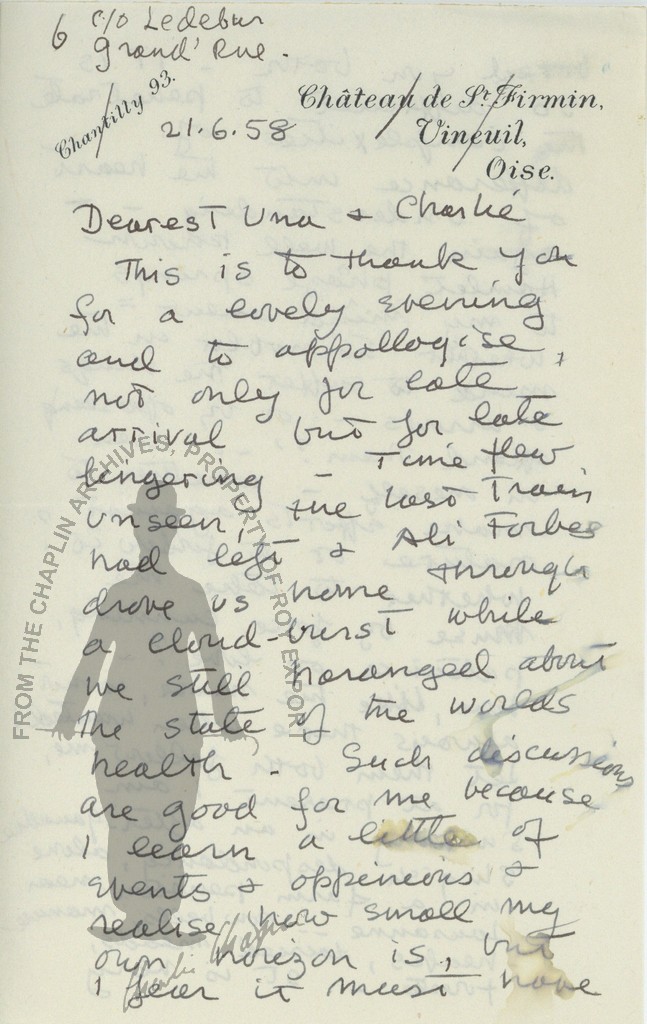 6 c/o Ledebur
Grand' Rue.
Chantilly 93.
Château de St. Firmin,
Vineuil,
Oise.
21.6.58
Dearest Una & Charlie
This is to thank you
for a lovely evening
and to appollogise,
not only for late
arrival but for late
lingering – Time flew
unseen, the last Train
had left & Ali Forbes
drove us home through
a cloud-burst while
we still haranged about
the state of the worlds
health – Such discussions
are good for me because
I learn a little of
events & oppineons &
realise how small my
own horizon is, but
I fear it must have
FROM THE CHAPLIN ARCHIVES, PROPERTY OF ROY EXPORT
Charlie Chaplin